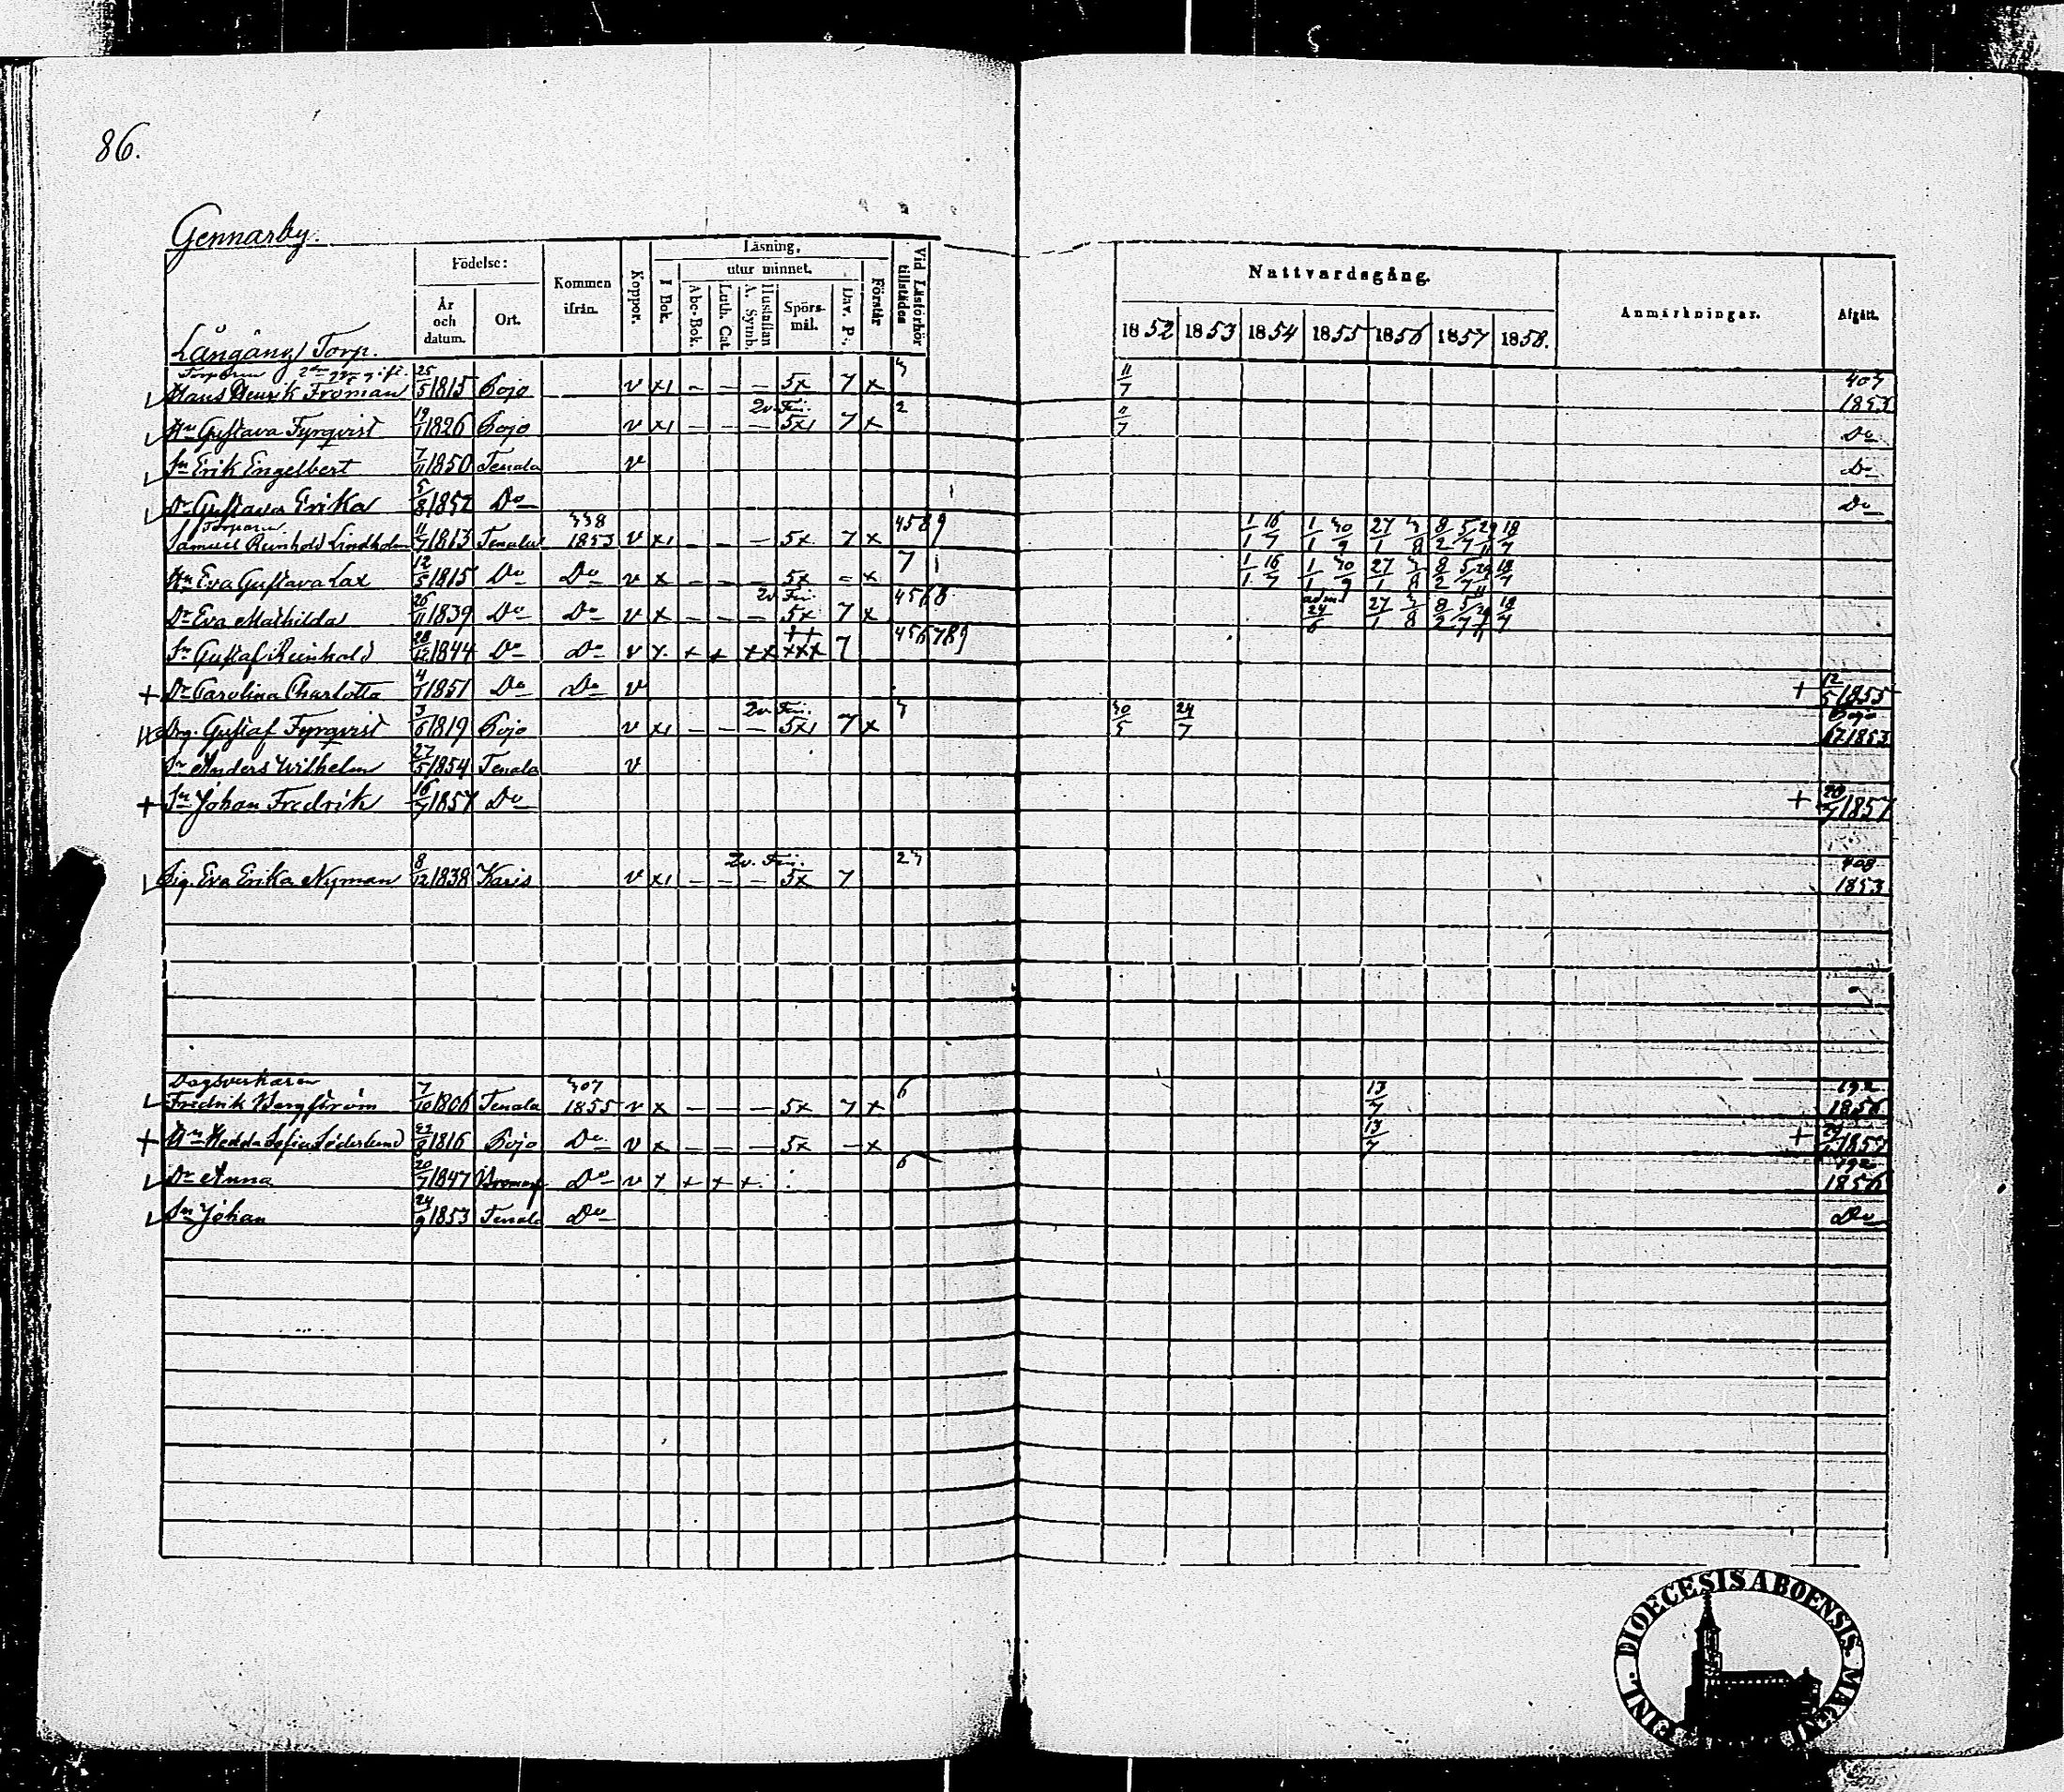 86.
Gennarby.
Långäng Torp.
Födelse: År och datum. Ort. Kommen ifrån. Koppor. Läsning, I Bok. utur minnet. Abc-Bok. Luth. Cat. Hustaflan A. Symb. Spörsmål. Dav. Ps. Förstår Vid Läsförhör tillstädes Nattvardsgång. 1852 1853 1854 1855 1856 1857 1858. Anmärkningar. Afgått.
Torparen 2dra ggn gift.
Hans Henrik Froman 25/5 1815 Pojo v x1 – – – 5x 7 x 3 11/7 1853
2v. Fri.
Hu Gustava Fyrqvist 19/1 1826 Pojo v x1 – – – 5x1 7 x 2 11/7 Do
Sn Erik Engelbert 7/11 1850 Tenala v Do
Dr Gustava Erika 5/8 1852 Do Do
Torparen
Samuel Reinhold Lindholm 11/7 1813 Tenala 338 1853 v x1 – – – 5x 7 x 4589 1/1 16/7 1/1 30/9 27/1 3/8 8/2 5/7 29/11 18/7
Hu Eva Gustava Lax 12/5 1815 Do Do v x – – – 5x – x 7 1/1 16/7 1/1 30/9 27/1 3/8 8/2 5/7 29/11 18/7
2v. Fri.
Dr Eva Mathilda 26/11 1839 Do Do v x – – – 5x 7 x 4568 adm 24/6 27/1 3/8 8/2 5/7 29/11 18/7
Sn Gustaf Reinhold 28/12 1844 Do Do v x + + xx xxx 7 456789
+ Dr Carolina Charlotta 4/1 1851 Do Do v + 12/5 1855
2v. Fri.
Drg. Gustaf Fyrqvist 3/6 1819 Pojo v x1 – – – 5x1 7 x 3 30/5 24/7 Pojo 1853
Sn Anders Wilhelm 27/5 1854 Tenala v
+ Sn Johan Fredrik 16/7 1857 Do + 20/7 1857
2v. Fri.
Pig. Eva Erika Nyman 8/12 1838 Karis v x1 – – – 5x 7 23 408 1853
Dagsverkaren
Fredrik Bergström 7/10 1806 Tenala 307 1855 v x – – – 5x 7 x 6 13/7 192 1856
+ Hu Hedda Sofia Söderlund 1816 Pojo Do v x – – – 5x – x 13/7 + 1857
Dr Anna 20/7 1847 Bromarf Do v x + + + 6 192 1856
Sn Johan 24/9 1853 Tenala Do Do
DIOECESIS ABOENSIS